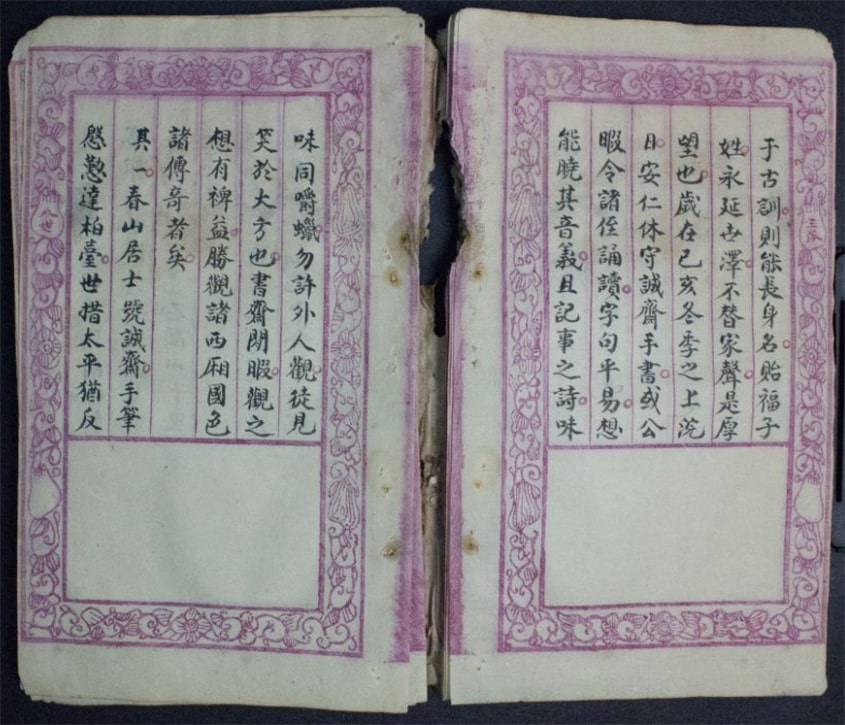 于古訓則能長身名貽福子
姓永延世澤不替家聲是厚
望也歲在己亥冬季之上浣
日安仁休守誠齋手書或公
暇令諸侄誦讀字句平易想
能曉其音義且記事之詩味
味同嚼蠟勿許外人觀徒見
笑於大方也書齋閒暇觀之
想有裨益勝觀諸西厢國色
諸傳奇者矣
其一春山居士號誠齋手筆
慇懃達柏臺世措太平猶反
八世